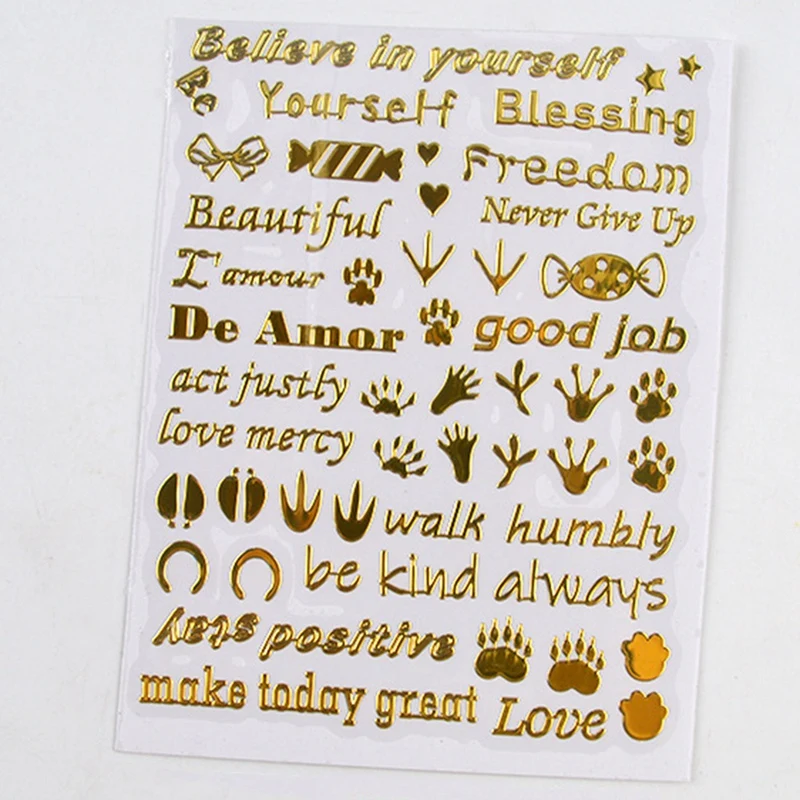 Believe in yourself
Be Yourself Blessing
Freedom
Beautiful Never Give Up
L'amour
De Amor good job
act justly
love mercy
walk humbly
be kind always
stay positive
make today great Love